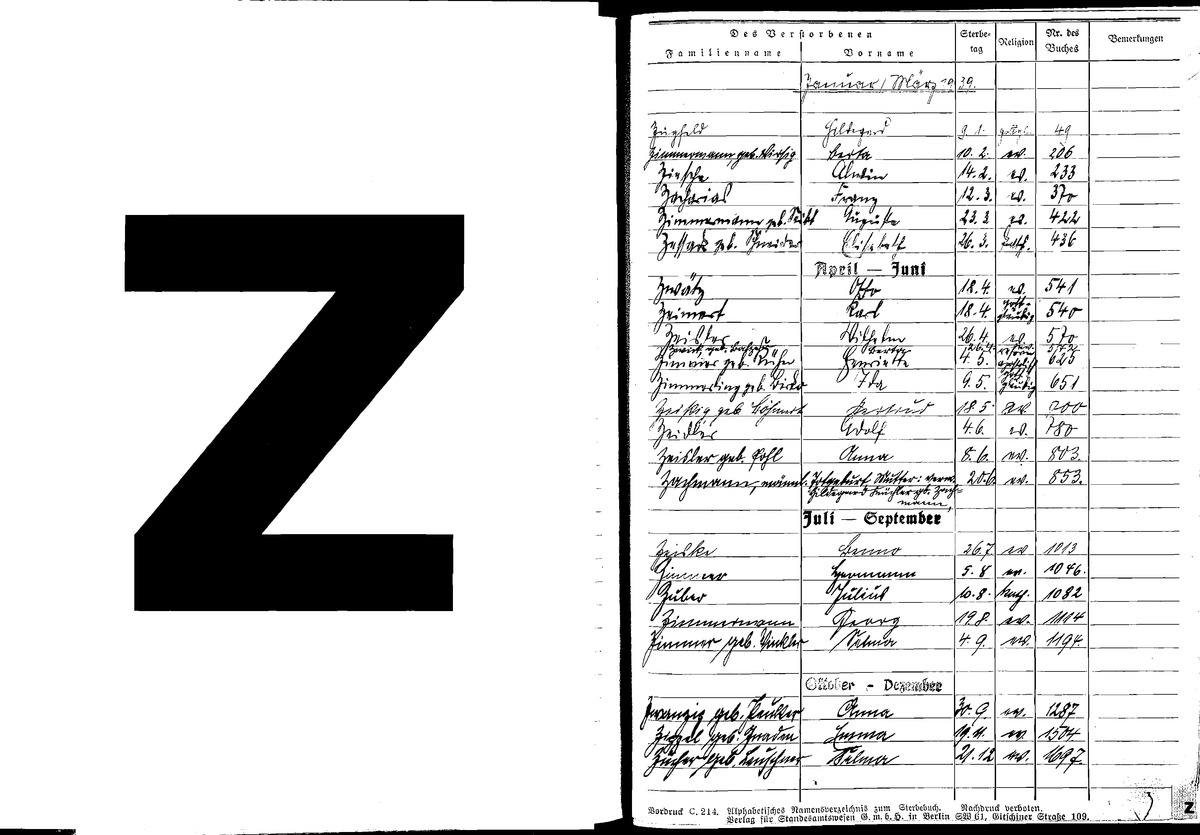 Z
Des Verstorbenen
Familienname Vorname Sterbe-tag Religion Nr. des Buches Bemerkungen
Januar / März 1939.
Hildegard 9. 1. 49
Zimmermann, geb. Berta 10. 2. ev. 206
Ziesche Alwin 14. 2. ev. 233
Zacharias Franz 12. 3. ev. 370
Zimmermann geb. Auguste 23. 3 ev. 422
geb. Schneider Elisabeth 26. 3. kath. 436
April — Juni
Zwätz Otto 12. 4. ev. 541
Karl 18. 4. gott-gläubig 540
Zeisler Wilhelm 26. 4. ev. 570
geb. Berta 26. 4.
geb. Kühn Henriette 4. 5. 625
Zimmerling geb. Ida 9. 5. gott-gläubig 651
Zeißig geb. Böhmert Gertrud 18. 5. ev. 700
Zeidler Adolf 4. 6. ev. 780
Zeisler geb. Pohl Anna 8. 6. ev. 803.
Zachmann, männl. Totgeburt Mutter: verw. 20. 6. ev. 853.
Hildegard geb. Zach-
mann,
Juli — September
Zeiske Benno 26. 7 ev 1013
Zimmer Hermann 5. 8 ev. 1046.
Zuber Julius 10. 8. 1082
Zimmermann Georg 19. 8. ev. 1114
Zimmer, geb. Winkler Selma 4. 9. ev. 1194.
Oktober - Dezember
Zwanzig geb. Peuker Anna 30. 9. ev. 1287
geb. Gnaden Emma 19. 11. ev 1504.
geb. Leuschner Selma 21. 12 ev. 1697.
Vordruck C. 214. Alphabetisches Namensverzeichnis zum Sterbebuch. Nachdruck verboten.
Verlag für Standesamtswesen G. m. b. H. in Berlin SW 61, Gitschiner Straße 109.
Z